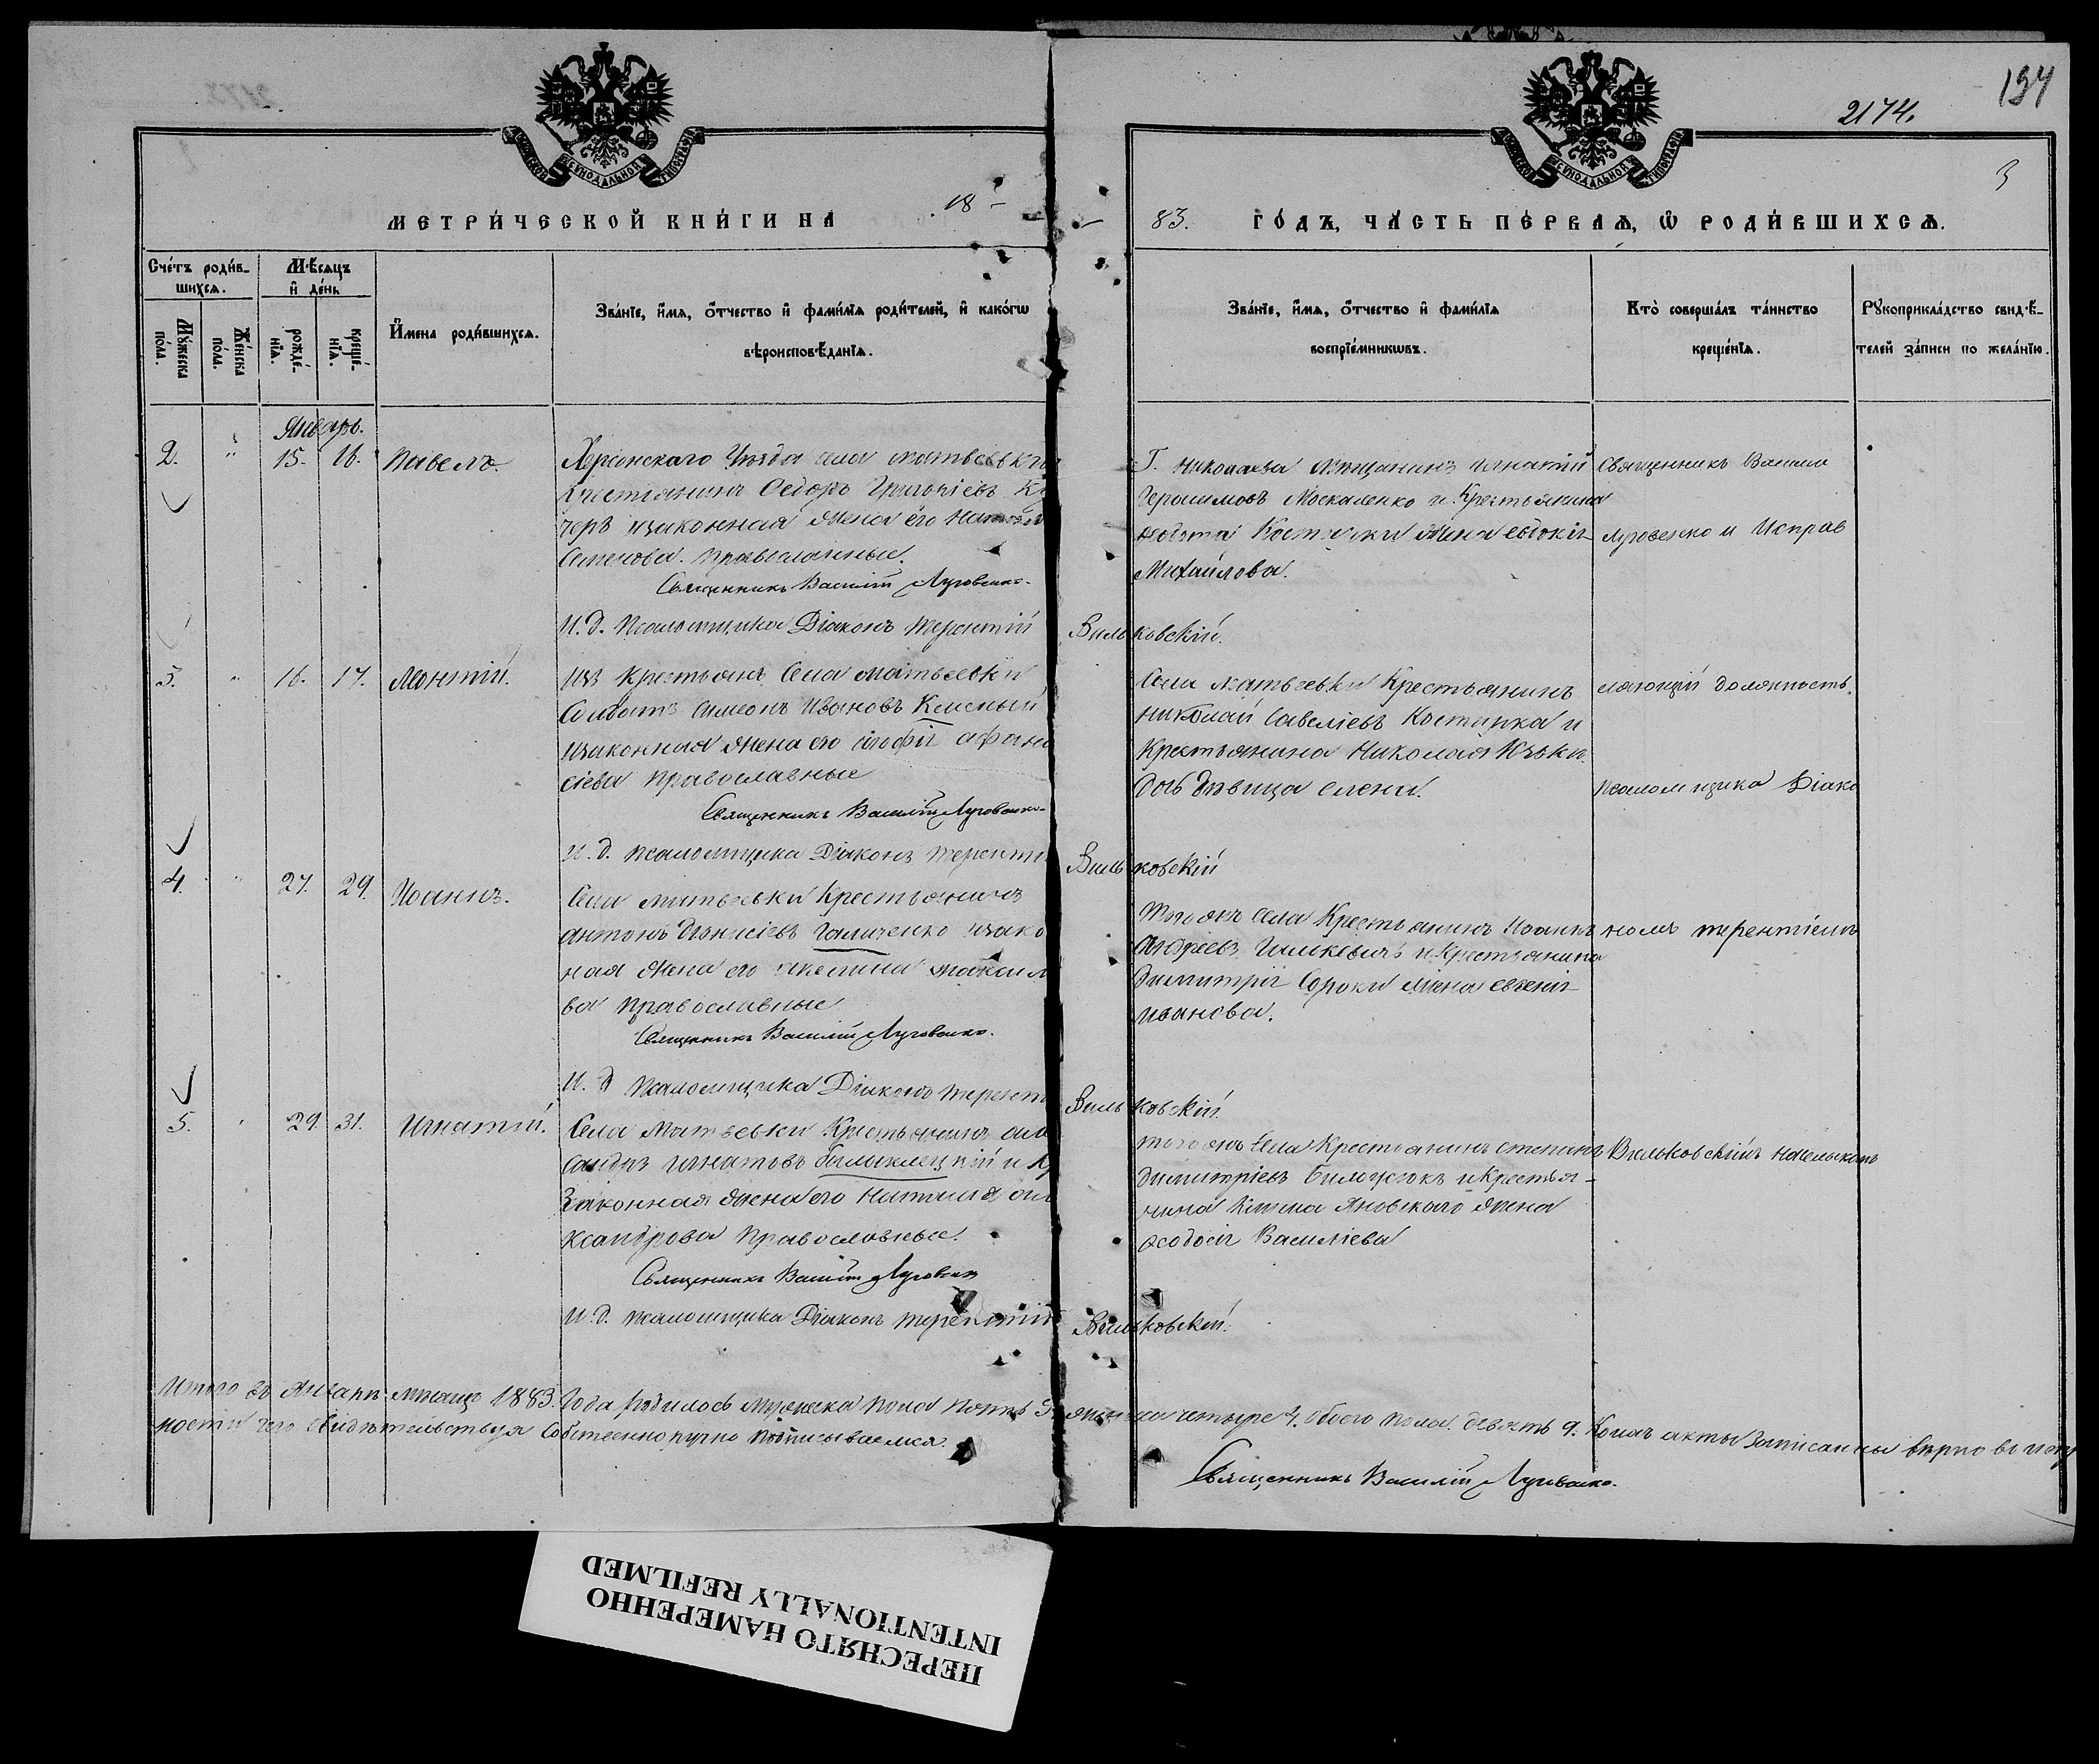 134
2174.
3
СѴНОДАЛЬНОЙ
СѴНОДАЛЬНОЙ
МЕТРИ́ЧЕСКОЙ КНИ́ГИ НА 18
83. ГО́ДЪ, ЧА́СТЬ ПЕ́РВАѦ, Ѡ РОДИ́ВШИХСѦ.
Сче́тъ роди́в-
шихсѧ.
Мѣ́сяцъ
и҆ де́нь
Му́жеска по́ла.
Же́нска по́ла.
рожде́нїѧ.
креще́нїѧ.
И҆мена роди́вшихсѧ.
Зва́нїе, и҆́мѧ, ѻ҆́тчество и҆ фами́лїѧ роди́телей, и҆ како́гѡ
вѣроисповѣ́данїѧ.
Зва́нїе, и҆́мѧ, ѻ҆́тчество и҆ фами́лїѧ
воспрїе́мникѡвъ.
Кто̀ соверша́лъ та́инство
креще́нїѧ.
Рꙋкоприкла́дство свидѣ́-
телей за́писи по жела́нїю.
Январь.
2. " 15. 16. Павелъ.
Херсонскаго Уѣзда села Матвѣевки
Крестьянинъ Ѳедоръ Григоріевъ
черъ изаконная Жена его
Семенова. Православные.
Священникъ Василій Луговенко.
И. д. Псаломщика Діаконъ Терентій Вильковскій.
Г. Николаева Мѣщанинъ Игнатій
Герасимовъ Москаленко и Крестьянина
Костырки Жена Евдокія
Михайлова.
Священникъ Васили
Луговенко и Исправ
3. " 16. 17. Леонтій.
Изъ Крестьянъ Села Матвѣевки
Солдатъ Симеонъ Ивановъ
изаконная Жена его Афана
сіева Православные
Священникъ Василій Луговенко
И. д. Псаломщика Діаконъ Терентій Вильковскій
Села Матвѣевки Крестьянинъ
Николай Савеліевъ Костырка и
Крестьянина Николая
дочь дѣвица Елена.
ляющій должность.
псаломщика Діако
4. " 27. 29. Иоаннъ.
Села Матвѣевки Крестьянинъ
Антонъ Діонисіевъ Галиченко изако
ная Жена его Акелина Максимо
ва Православные
Священникъ Василій Луговенко.
И. д Псаломщика Діаконъ Терентій Вильковскій.
Того жъ села Крестьянинъ Иоаннъ
Андреевъ и Крестьянина
Димитрія Сороки Жена Евгенія
Иванова.
номъ Терентіемъ
5. " 29. 31. Игнатій.
Села Матвѣевки Крестьянинъ Але
сандръ Игнатовъ и
Законная Жена его Наталія Але
ксандрова Православные.
Священникъ Василій Луговенко
И. д. Псаломщика Діаконъ Терентій Вильковскій.
того жъ Села Крестьянинъ Степанъ
Димитріевъ и Крестья-
нина Яновскаго Жена
Ѳеодосія Василіева
Вильковскимъ
Итого въ Январѣ мѣсяцѣ 1883. Года родилось Мужеска пола пять 5. женска четыре 4. обоего пола. девять 9. Коихъ акты Записанны вѣрно въ
ности чего свидѣтельствуя Собственноручно подписываемся.
Священникъ Василій Луговенко.
ПЕРЕСНЯТО НАМЕРЕННО
INTENTIONALLY REFILMED